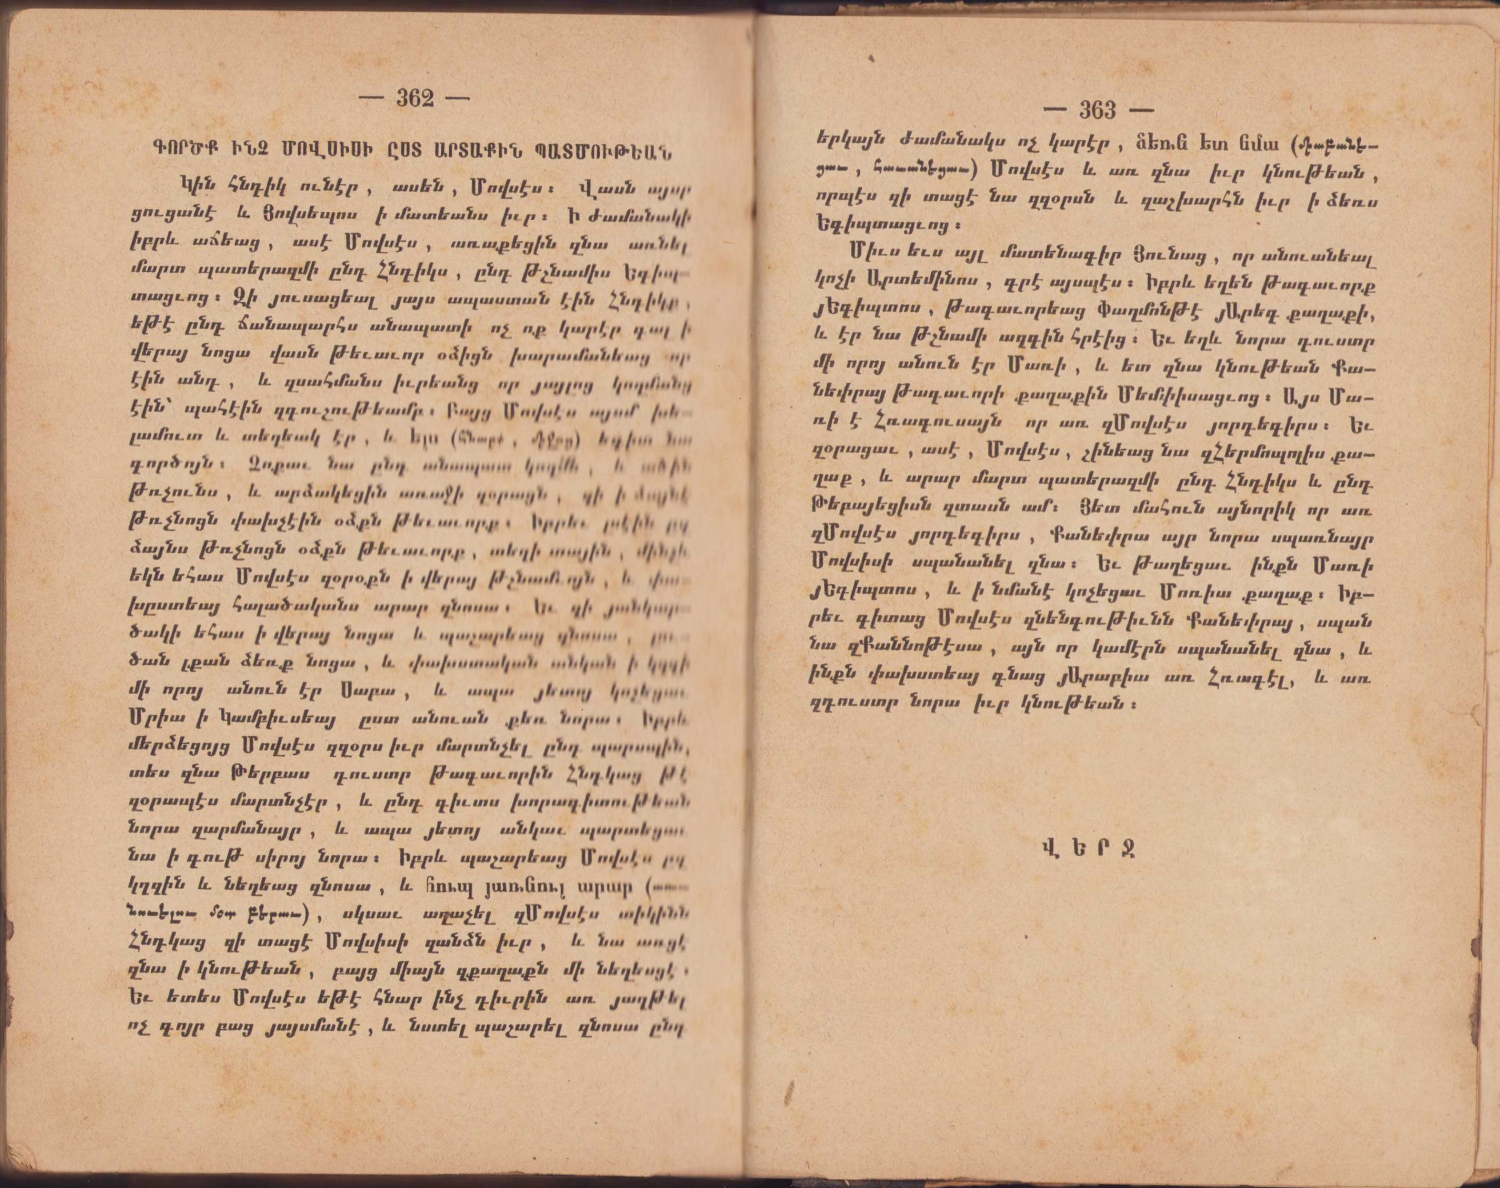 — 362 —
ԳՈՐԾՔ ԻՆՉ ՄՈՎՍԻՍԻ ԸՍՏ ԱՐՏԱՔԻՆ ՊԱՏՄՈՒԹԵԱՆ
Կին հնդիկ ունէր , ասեն , Մովսէս ։ Վասն այսր
ցուցանէ և Յովսեպոս ի մատեանս իւր ։ Ի ժամանակի
իբրև աճեաց , ասէ Մովսէս , առաքեցին զնա առնել
մարտ պատերազմի ընդ Հնդիկս , ընդ թշնամիս Եգիպ–
տացւոց ։ Զի յուսացեալ յայս ապաստան էին Հնդիկք ,
եթէ ընդ ճանապարհս անապատի ոչ ոք կարէր գալ ի
վերայ նոցա վասն թեւաւոր օձիցն խարամանեաց որ
էին անդ , և զսահմանս իւրեանց որ յայլոց կողմանց
էին՝ պահէին զգուշութեամբ ։ Բայց Մովսէս այսմ խե–
լամուտ և տեղեակ էր , և ելս (հնարք , միջոց) եգիտ նա
գործոյն ։ Չոքաւ նա ընդ անապատ կողմն , և ածին
թռչունս , և արձակեցին առաջի զօրացն , զի ի ձայնէ
թռչնոցն փախչէին օձքն թեւաւորք ։ Իբրեւ լսէին զայ
ձայնս թռչնոցն օձքն թեւաւորք , տեղի տային , մինչև
եկն եհաս Մովսէս զօրօքն ի վերայ թշնամեոյն , և փա–
խըստեայ հալածականս արար զնոսա ։ Եւ զի յանկար–
ծակի եհաս ի վերայ նոցա և պաշարեաց զնոսա , լու–
ծան լքան ձեռք նոցա , և փախստական անկան ի կղզի
մի որոյ անուն էր Սարա , և ապա յետոյ կոչեցաւ
Մրիա ի Կամբիւսեայ ըստ անուան քեռ նորա ։ Իբրև
մերձեցոյց Մովսէս զզօրս իւր մարտնչել ընդ պարսպին,
տես զնա Թերբաս դուստր թագաւորին Հնդկաց թէ
զօրապէս մարտնչէր , և ընդ գիւտս խորագիտութեան
նորա զարմանայր , և ապա յետոյ անկաւ պարտեցաւ
նա ի գութ սիրոյ նորա ։ Իբրև պաշարեաց Մովսէս զկ
կղզին և նեղեաց զնոսա , և հուպ յառնուլ արար (առ–
նուելու մօտ բերաւ) , սկսաւ աղաչել զՄովսէս տիկինն
Հնդկաց զի տացէ Մովսիսի զանձն իւր , և նա առցէ
զնա ի կնութեան , բայց միայն զքաղաքն մի նեղեսցէ ։
Եւ ետես Մովսէս եթէ հնար ինչ դիւրին առ յաղթել
ոչ գոյր բաց յայսմանէ , և նստել պաշարել զնոսա ընդ
— 363 —
երկայն ժամանակս ոչ կարէր , ձեռն ետ նմա (դաբանե–
ցաւ , հաւանեցաւ) Մովսէս և առ զնա իւր կնութեան ,
որպէս զի տացէ նա զզօրսն և զաշխարհն իւր ի ձեռս
Եգիպտացւոց ։
Միւս եւս այլ մատենագիր Յունաց , որ անուանեալ
կոչի Արտեմինոս , գրէ այսպէս ։ Իբրև եղեն թագաւորք
յԵգիպտոս , թագաւորեաց Փաղմոնթէ յԱրեգ քաղաքի,
և էր նա թշնամի ազգին հրէից ։ Եւ եղև նորա դուստր
մի որոյ անուն էր Մառի , և ետ զնա կնութեան Քա–
նեփրայ թագաւորի քաղաքին Մեմփիսացւոց ։ Այս Մա–
ռի է Հռագուսայն որ առ զՄովսէս յորդեգիրս ։ Եւ
զօրացաւ , ասէ , Մովսէս , շինեաց նա զՀերմոպոլիս քա–
ղաք , և արար մարտ պատերազմի ընդ Հնդիկս և ընդ
Թեբայեցիսն զտասն ամ ։ Յետ մահուն այնորիկ որ առ
զՄովսէս յորդեգիրս , Քանեփրա այր նորա սպառնայր
Մովսիսի սպանանել զնա ։ Եւ թաղեցաւ ինքն Մառի
յԵգիպտոս , և ի նմանէ կոչեցաւ Մոռիա քաղաք ։ Իբ–
րեւ գիտաց Մովսէս զնենգութիւնն Քանեփրայ , սպան
նա զՔաննոթէսա , այն որ կամէրն սպանանել զնա , և
ինքն փախստեայ գնաց յԱրաբիա առ Հռագէլ, և առ
զդուստր նորա իւր կնութեան ։
ՎԵՐՋ